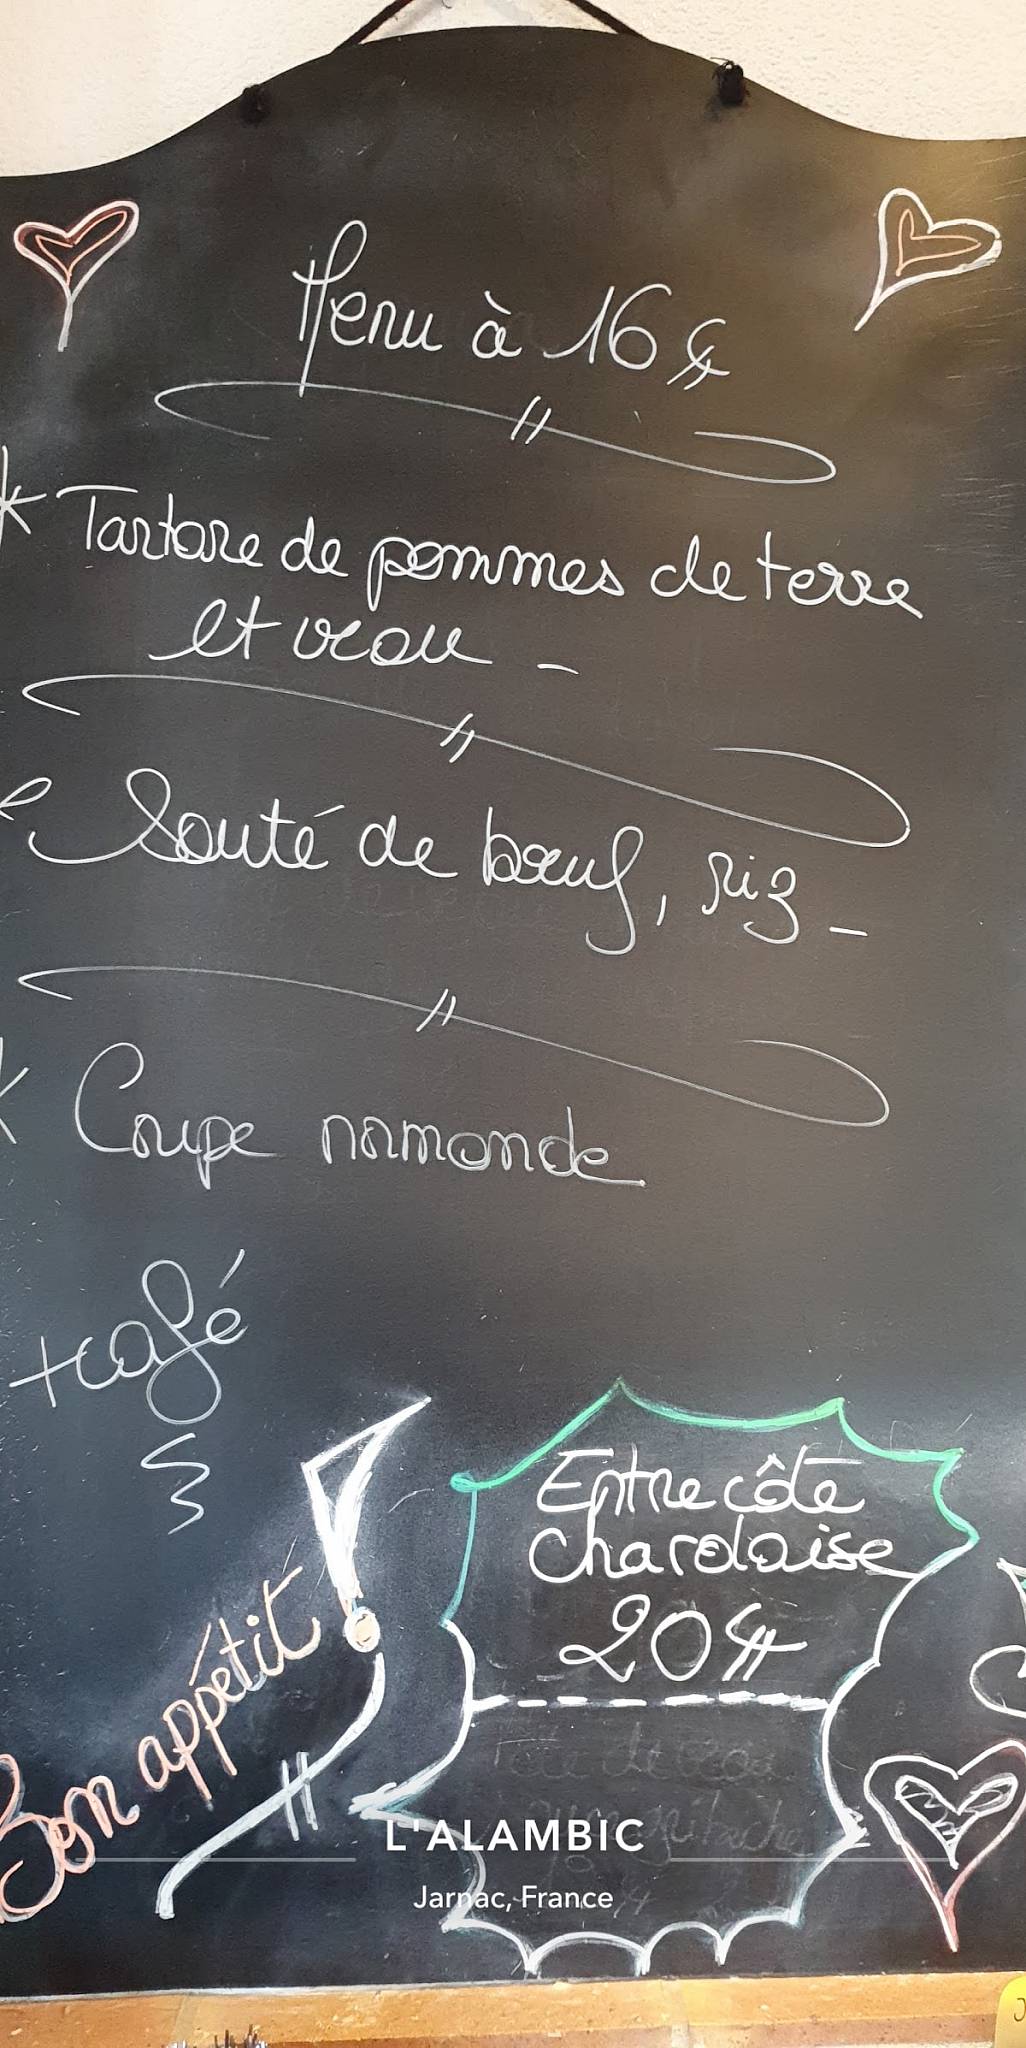 Menu à 16€
* Tartare de pommes de terre
et veau -
Sauté de bœuf, riz -
* Coupe normande
+ café
Entrecôte
charolaise
20€
Bon appétit
L'ALAMBIC
Jarnac, France